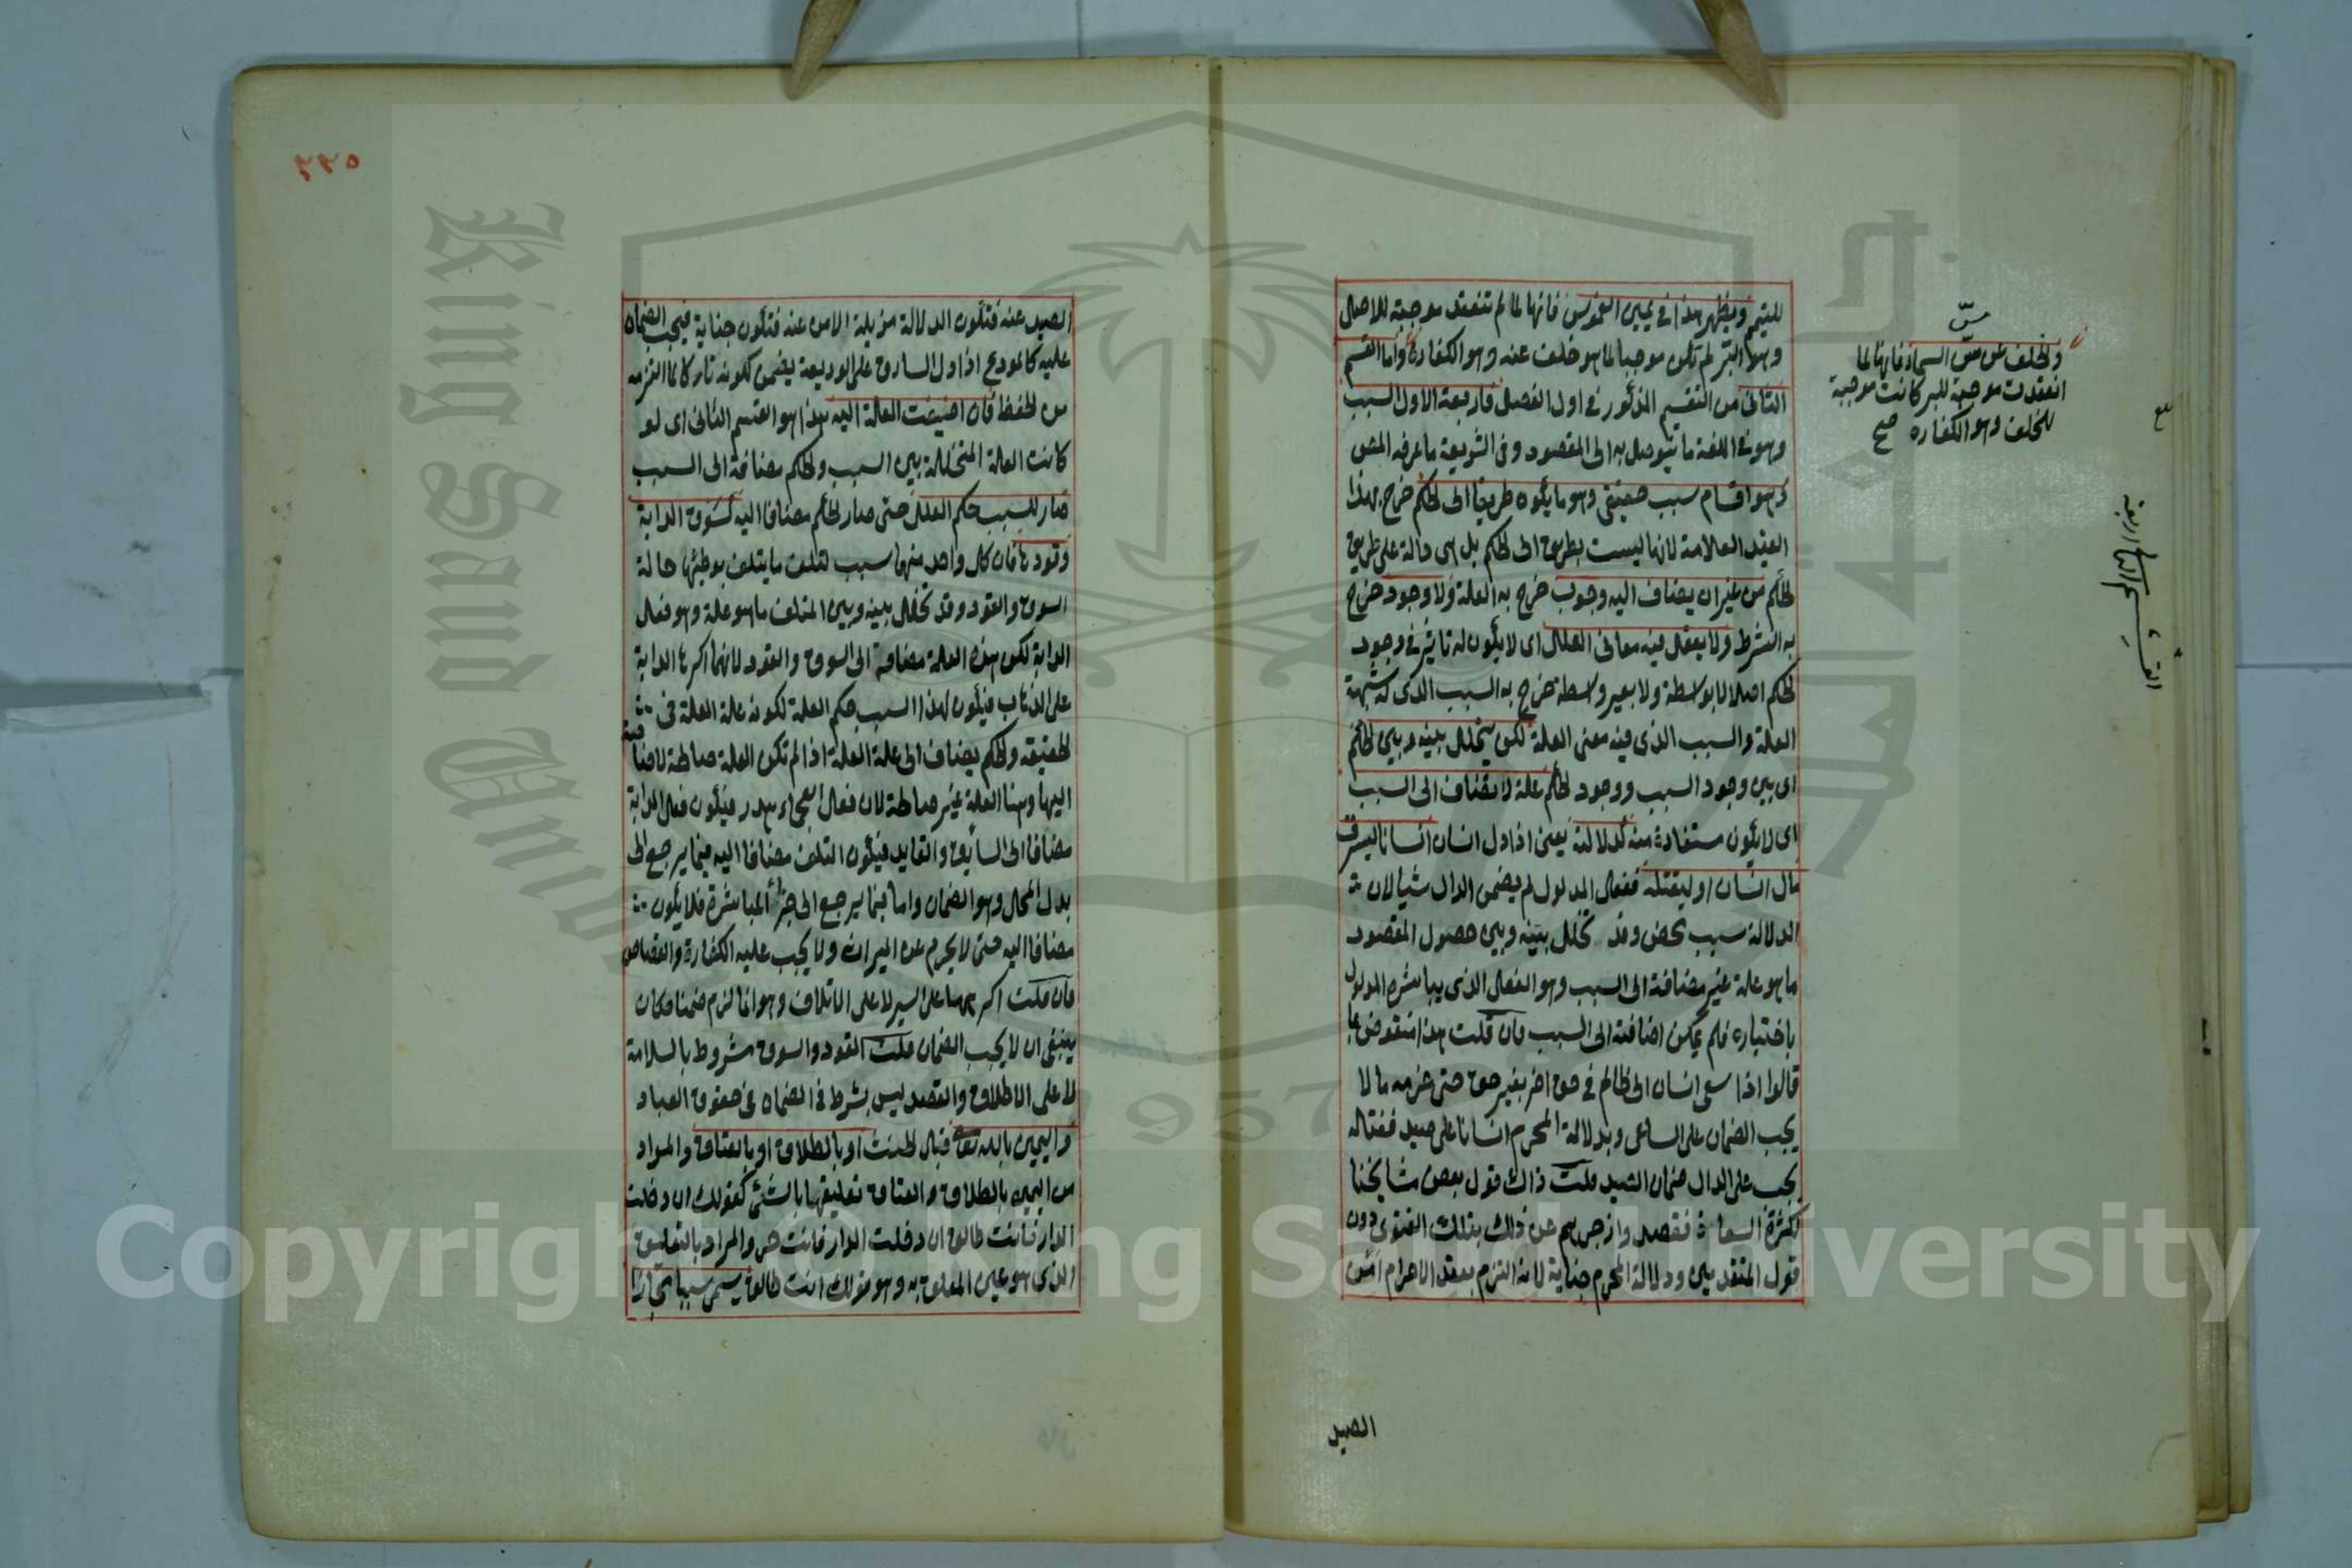 للتيمم ويظهر هذا في يمين الغموس فانها لما لم تنعقد موجبة للاصل
وهو البر لم تكن موجبا لما هو خلف عنه وهو الكفارة واما القسم
الثاني من التقسيم المذكور في اول الفصل فاربعة الاول السبب
وهو في اللغة ما يتوصل به الى المقصود وفي الشريعة ما عرفه المص
وهو اقسام سبب حقيقي وهو ما يكون طريقا الى الحكم خرج بهذا
القيد العلامة لانها ليست بطريق الى الحكم بل هي دالة على طريق
الحكم من غير ان يضاف اليه وجوب خرج به العلة ولا وجود خرج
به الشرط ولا يعقل فيه معاني العلل اي لا يكون له تاثير في وجود
الحكم اصلا لا بواسطة ولا بغير واسطة خرج به السبب الذي له شبهة
العلة والسبب الذي فيه معنى العلة لكن يتخلل بينه وبين الحكم
اي بين وجود السبب ووجود الحكم علة لا تضاف الى السبب
اي لا يكون مستفادة منه كدلالة يعني اذا دل انسان انسانا ليسرق
مال انسان او ليقتله ففعل المدلول لم يضمن الدال شيئا لان
الدلالة سبب محض وقد تخلل بينه وبين حصول المقصود
ما هو علة غير مضافة الى السبب وهو الفعل الذي يباشره المدلول
باختياره فلم يمكن اضافته الى السبب فان قلت هذا منقوض بما
قالوا اذا سعى انسان الى ظالم في حق اخر بغير حق حتى غرمه مالا
يجب الضمان على الساعي وبدلالة المحرم انسانا على صيد فقتله
يجب على الدال ضمان الصيد قلت ذاك قول بعض مشايخنا
لكثرة السعاة فقصدوا زجرهم عن ذلك بتلك الفتوى دون
قول المتقدمين ودلالة المحرم جناية لانه التزم بعقد الاحرام امن
الصيد
والخلف عن مس السماء فانها لما
انعقدت موجبة للبر كانت موجبة
للخلف وهو الكفاره صح
٢٢٥
الصيد عنه فتكون الدلالة مزيلة الامن عنه فتكون جناية فيجب الضمان
عليه كالمودع اذا دل السارق على الوديعة يضمن لكونه تاركا لما التزمه
من الحفظ فان اضيفت العلة اليه هذا هو القسم الثاني اي لو
كانت العلة المتخللة بين السبب والحكم مضافة الى السبب
صار للسبب حكم العلل حتى صار الحكم مضافا اليه كسوق الدابة
وقودها فان كل واحد منهما سبب لتلف ما يتلف بوطئها حالة
السوق والقود وقد تخلل بينه وبين المتلف ما هو علة وهو فعل
الدابة لكن هذه العلة مضافة الى السوق والقود لانهما اكرها الدابة
على الذهاب فيكون لهذا السبب حكم العلة لكونه علة العلة في
الحقيقة والحكم يضاف الى علة العلة اذا لم تكن العلة صالحة لاضافته
اليها وهنا العلة غير صالحة لان فعل العجماء هدر فيكون فعل الدابة
مضافا الى السائق والقايد فيكون التلف مضافا اليه فيما يرجع الى
بدل المحل وهو الضمان واما فيما يرجع الى جزاء المباشرة فلا يكون
مضافا اليه حتى لا يحرم عن الميراث ولا يجب عليه الكفارة والقصاص
فان قلت اكرهها على السير لا على الاتلاف وهو انما لزم ضمنا فكان
ينبغي ان لا يجب الضمان قلت القود والسوق مشروط بالسلامة
لا على الاطلاق والقصد ليس بشرط في الضمان في حقوق العباد
واليمين بالله تعالى قبل الحنث او بالطلاق او بالعتاق والمراد
من اليمين بالطلاق والعتاق تعليقها بالشيء كقولك ان دخلت
الدار فانت طالق ان دخلت الدار فانت حر والمراد بالتعليق
الذي هو عين المعلق به وهو قولك انت طالق يسمى سببا مجازا
Copyright © King Saud University
King Saud University
1957